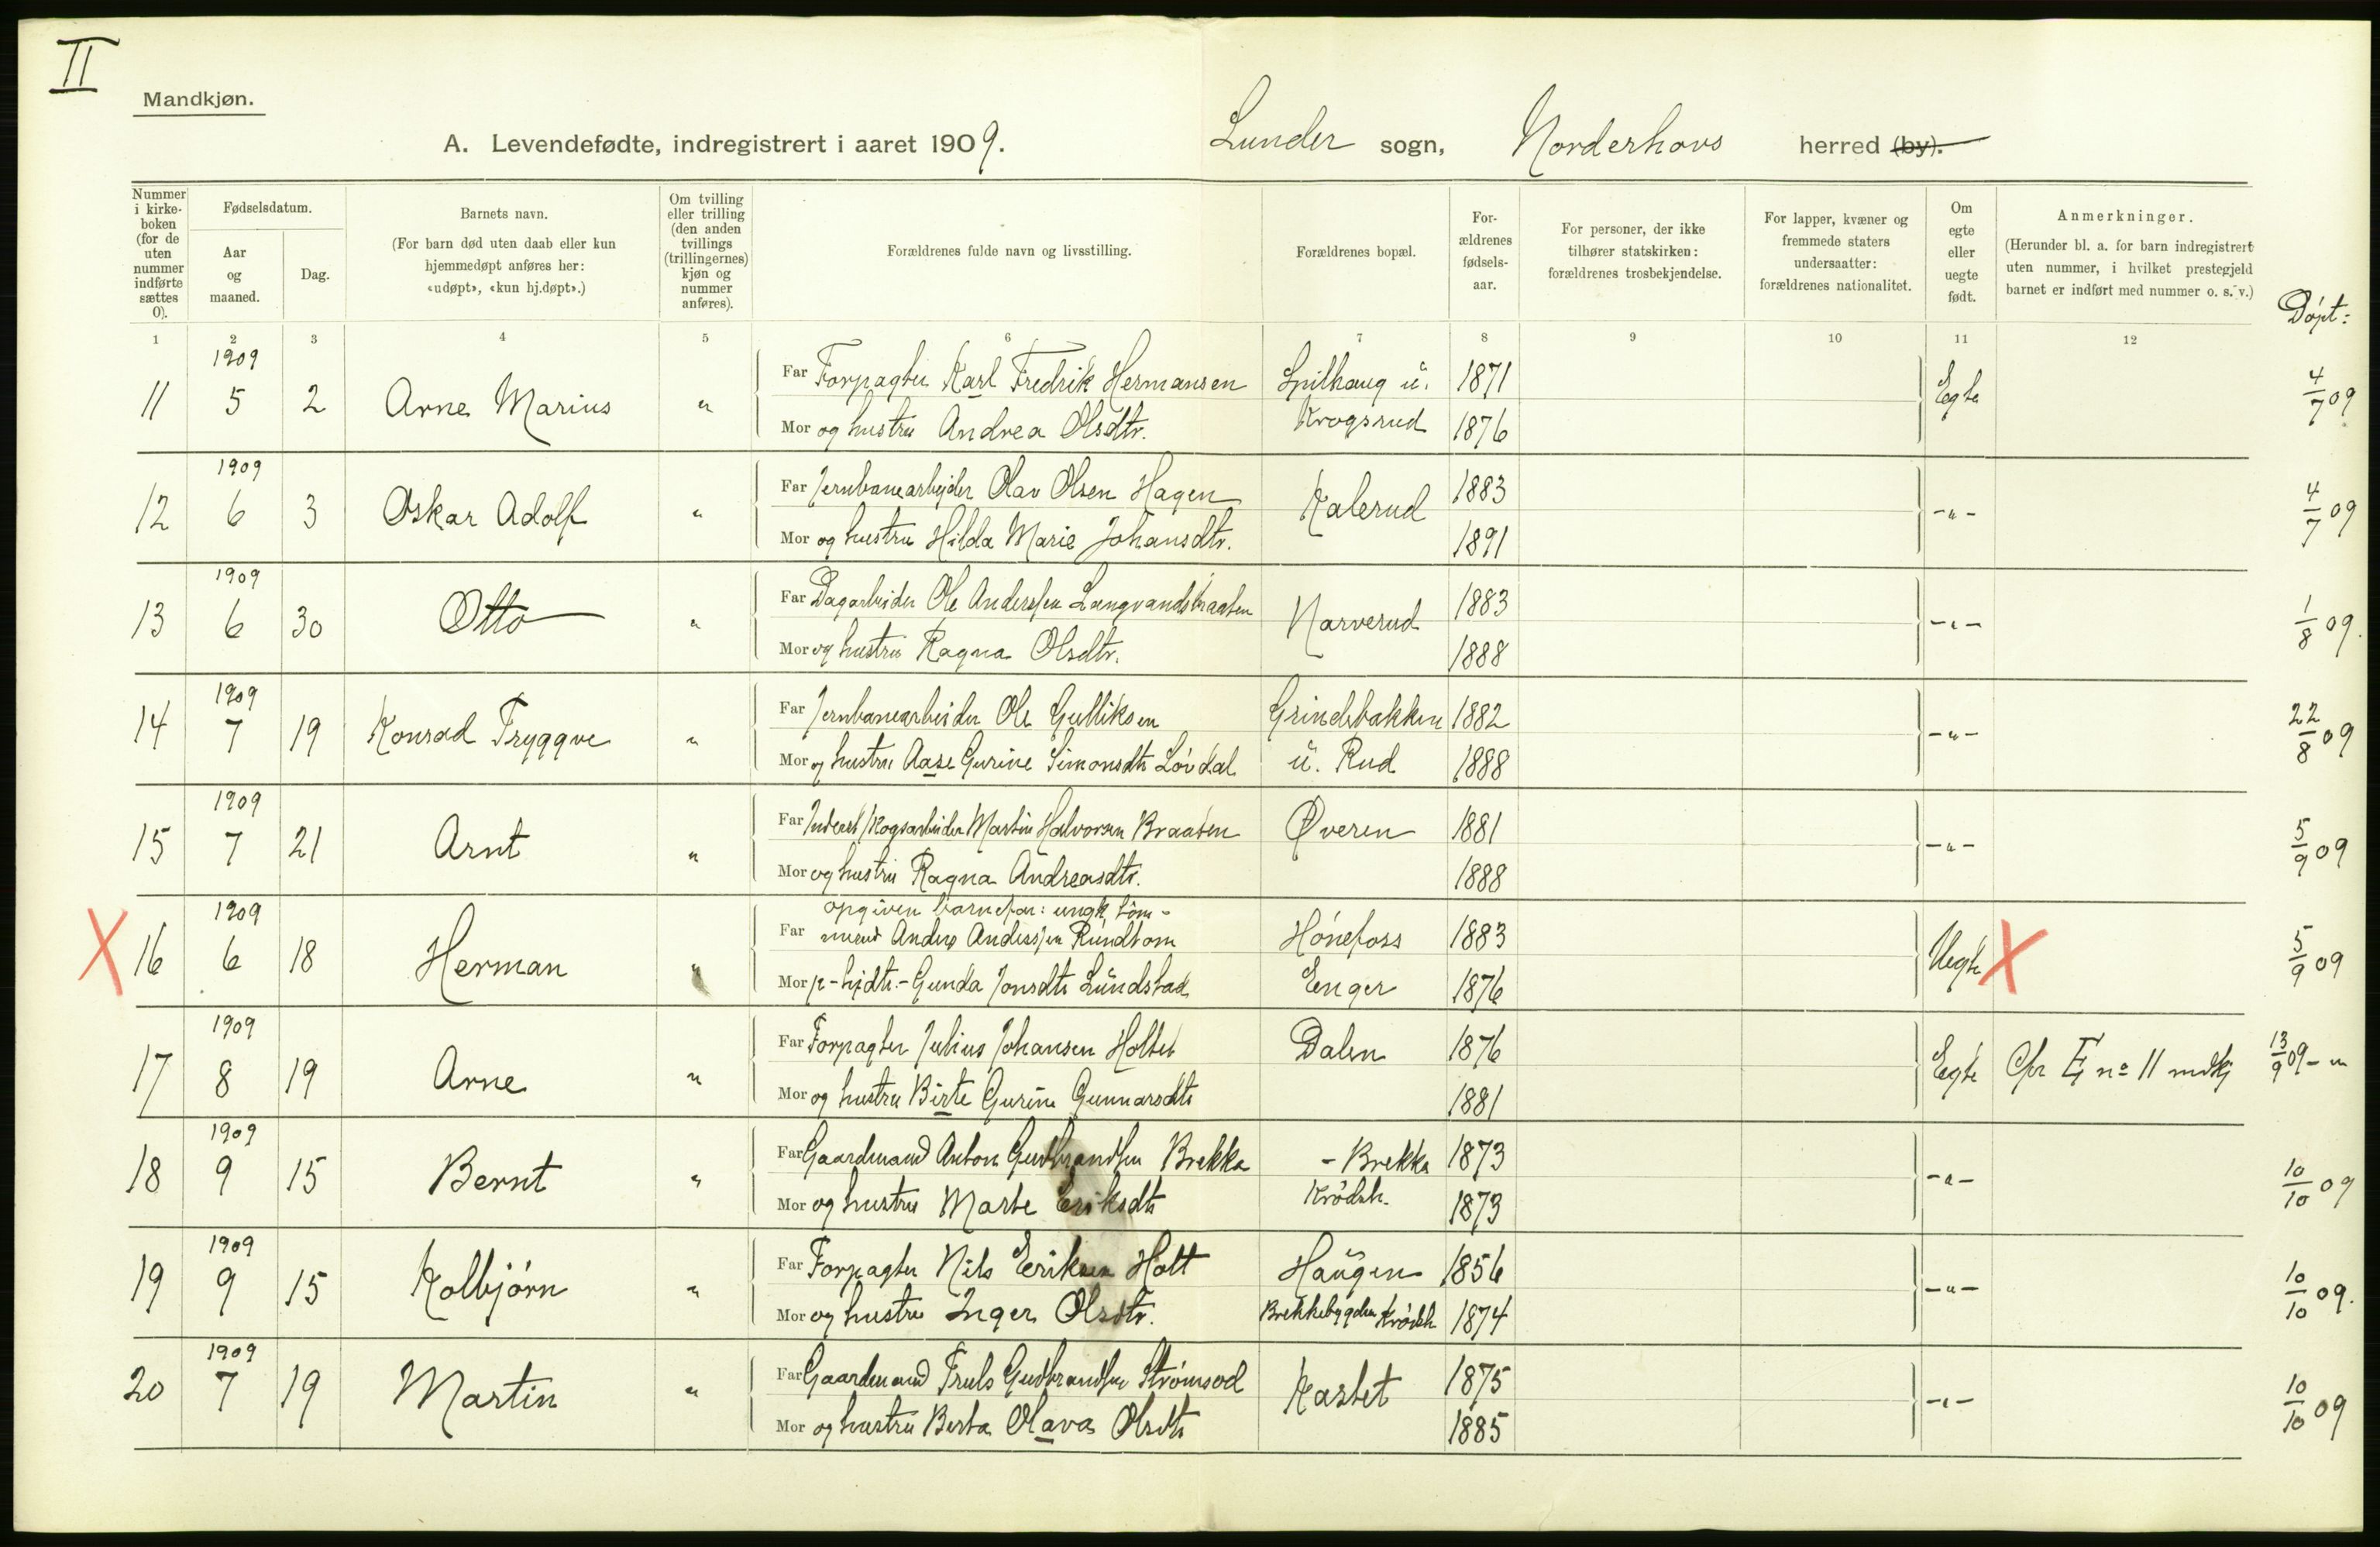 II
Mandkjøn.
A. Levendefødte, indregistrert i aaret 1909. Lunder sogn, Norderhovs herred (by).
Nummer i kirke-boken (for de uten nummer indførte sættes 0).
Fødselsdatum.
Aar og maaned.
Dag.
Barnets navn.
(For barn død uten daab eller kun hjemmedøpt anføres her: «udøpt», «kun hj.døpt».)
Om tvilling eller trilling (den anden tvillings (trillingernes) kjøn og nummer anføres).
Forældrenes fulde navn og livsstilling.
Forældrenes bopæl.
For-ældrenes fødsels-aar.
For personer, der ikke tilhører statskirken: forældrenes trosbekjendelse.
For lapper, kvæner og fremmede staters undersaatter: forældrenes nationalitet.
Om egte eller uegte født.
Anmerkninger.
(Herunder bl. a. for barn indregistrert uten nummer, i hvilket prestegjeld barnet er indført med nummer o. s. v.)
Døpt:
1 2 3 4 5 6 7 8 9 10 11 12
1909
11 5 2 Arne Marius " Far Forpagter Karl Fredrik Hermansen 1871 Egte 4/7 09
Mor og hustru Andrea Olsdtr. Krogsrud 1876
1909
12 6 3 Oskar Adolf " Far Jernbanearbeider Olav Olsen Hagen Kalerud 1883 -"- 4/7 09
Mor og hustru Hilda Marie Johansdtr. 1891
1909
13 6 30 Otto " Far Dagarbeider Ole Anderssen Langvandsbraaten Narverud 1883 -"- 1/8 09.
Mor og hustru Ragna Olsdtr. 1888
1909
14 7 19 Konrad Tryggve " Far Jernbanearbeider Ole Gulliksen Grindebakken 1882 -"- 22/8 09
Mor og hustru Aase Gurine Simonsdtr Løvdal u. Rud 1888
1909
15 7 21 Arnt " Far Inderst Skogsarbeider Martin Halvorsen Braaten Øveren 1881 -"- 5/9 09
Mor og hustru Ragna Andreasdtr. 1888
1909 opgiven barnefar: ungk. tøm-
X 16 6 18 Herman " Far mermd Anders Anderssen Rundtom Hønefoss 1883 Uegte X 5/9 09
Mor Gunda Jonsdtr Lundstad Enger 1876
1909
17 8 19 Arne " Far Forpagter Julius Johansen Holtet Dalen 1876 Egte Cfr E no 11 mdkj 13/9 09 -
Mor og hustru Birte Gurine Gunnarsdtr 1881
1909
18 9 15 Bernt " Far Gaardmand Anton Gudbrandsen Brekke - Brekka 1873 -"- 10/10 09
Mor og hustru Marte Eriksdtr Krødsh. 1873
1909
19 9 15 Kolbjørn " Far Forpagter Nils Eriksen Hott Haugen 1856 -"- 10/10 09.
Mor og hustru Inger Olsdtr. Brekkebygden Krødsh 1874
1909
20 7 19 Martin " Far Gaardmand Truls Gudbrandsen Strømsod Kastet 1875 -"- 10/10 09
Mor og hustru Berta Olava Olsdtr 1885